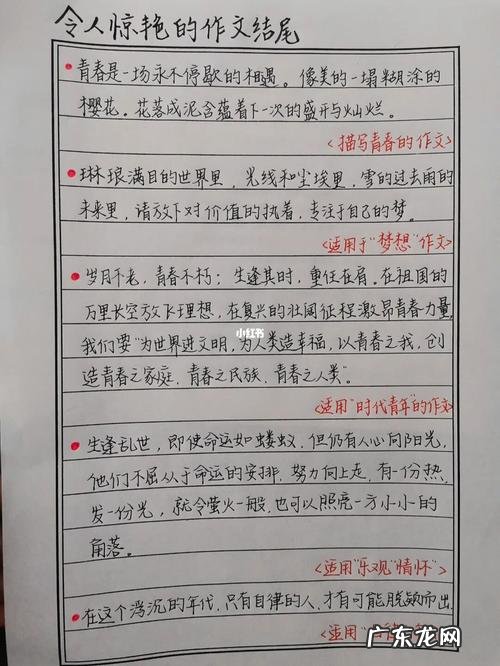 令人惊艳的作文结尾
青春是一场永不停歇的相遇。像美的一塌糊涂的
樱花。花落成泥含蕴着下一次的盛开与灿烂。
<描写青春的作文>
琳琅满目的世界里，光线和尘埃里，雪的过去雨的
未来里，请放下对价值的执着，专注于自己的梦。
<适用于"梦想"作文>
岁月不老，青春不朽；生逢其时，重任在肩。在祖国的
万里长空放飞理想，在复兴的壮阔征程激昂青春力量，
小红书
我们要"为世界进文明，为人类造幸福，以青春之我，创
造青春之家庭，青春之民族，青春之人类"。
<适用"时代青年"的作文>
生逢乱世，即使命运如蝼蚁，但仍有人心向阳光，
他们不屈从于命运的安排，努力向上走，有一份热，
发一份光，就令萤火一般，也可以照亮一方小小的
角落。
<适用"乐观""情怀">
在这个浮沉的年代，只有自律的人，才有可能脱颖而出
<适用"
广东龙网